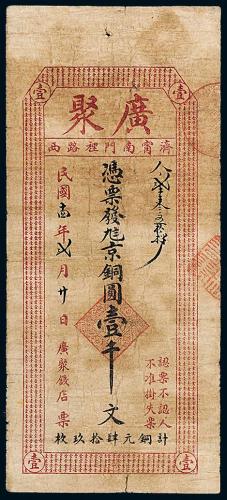 壹 壹
廣聚
濟甯南門裡路西
憑票發兌京銅圓壹千文
民國壹年弍月廿日廣聚錢店票
認票不認人
不准掛失票
計銅元肆拾玖枚
壹 壹